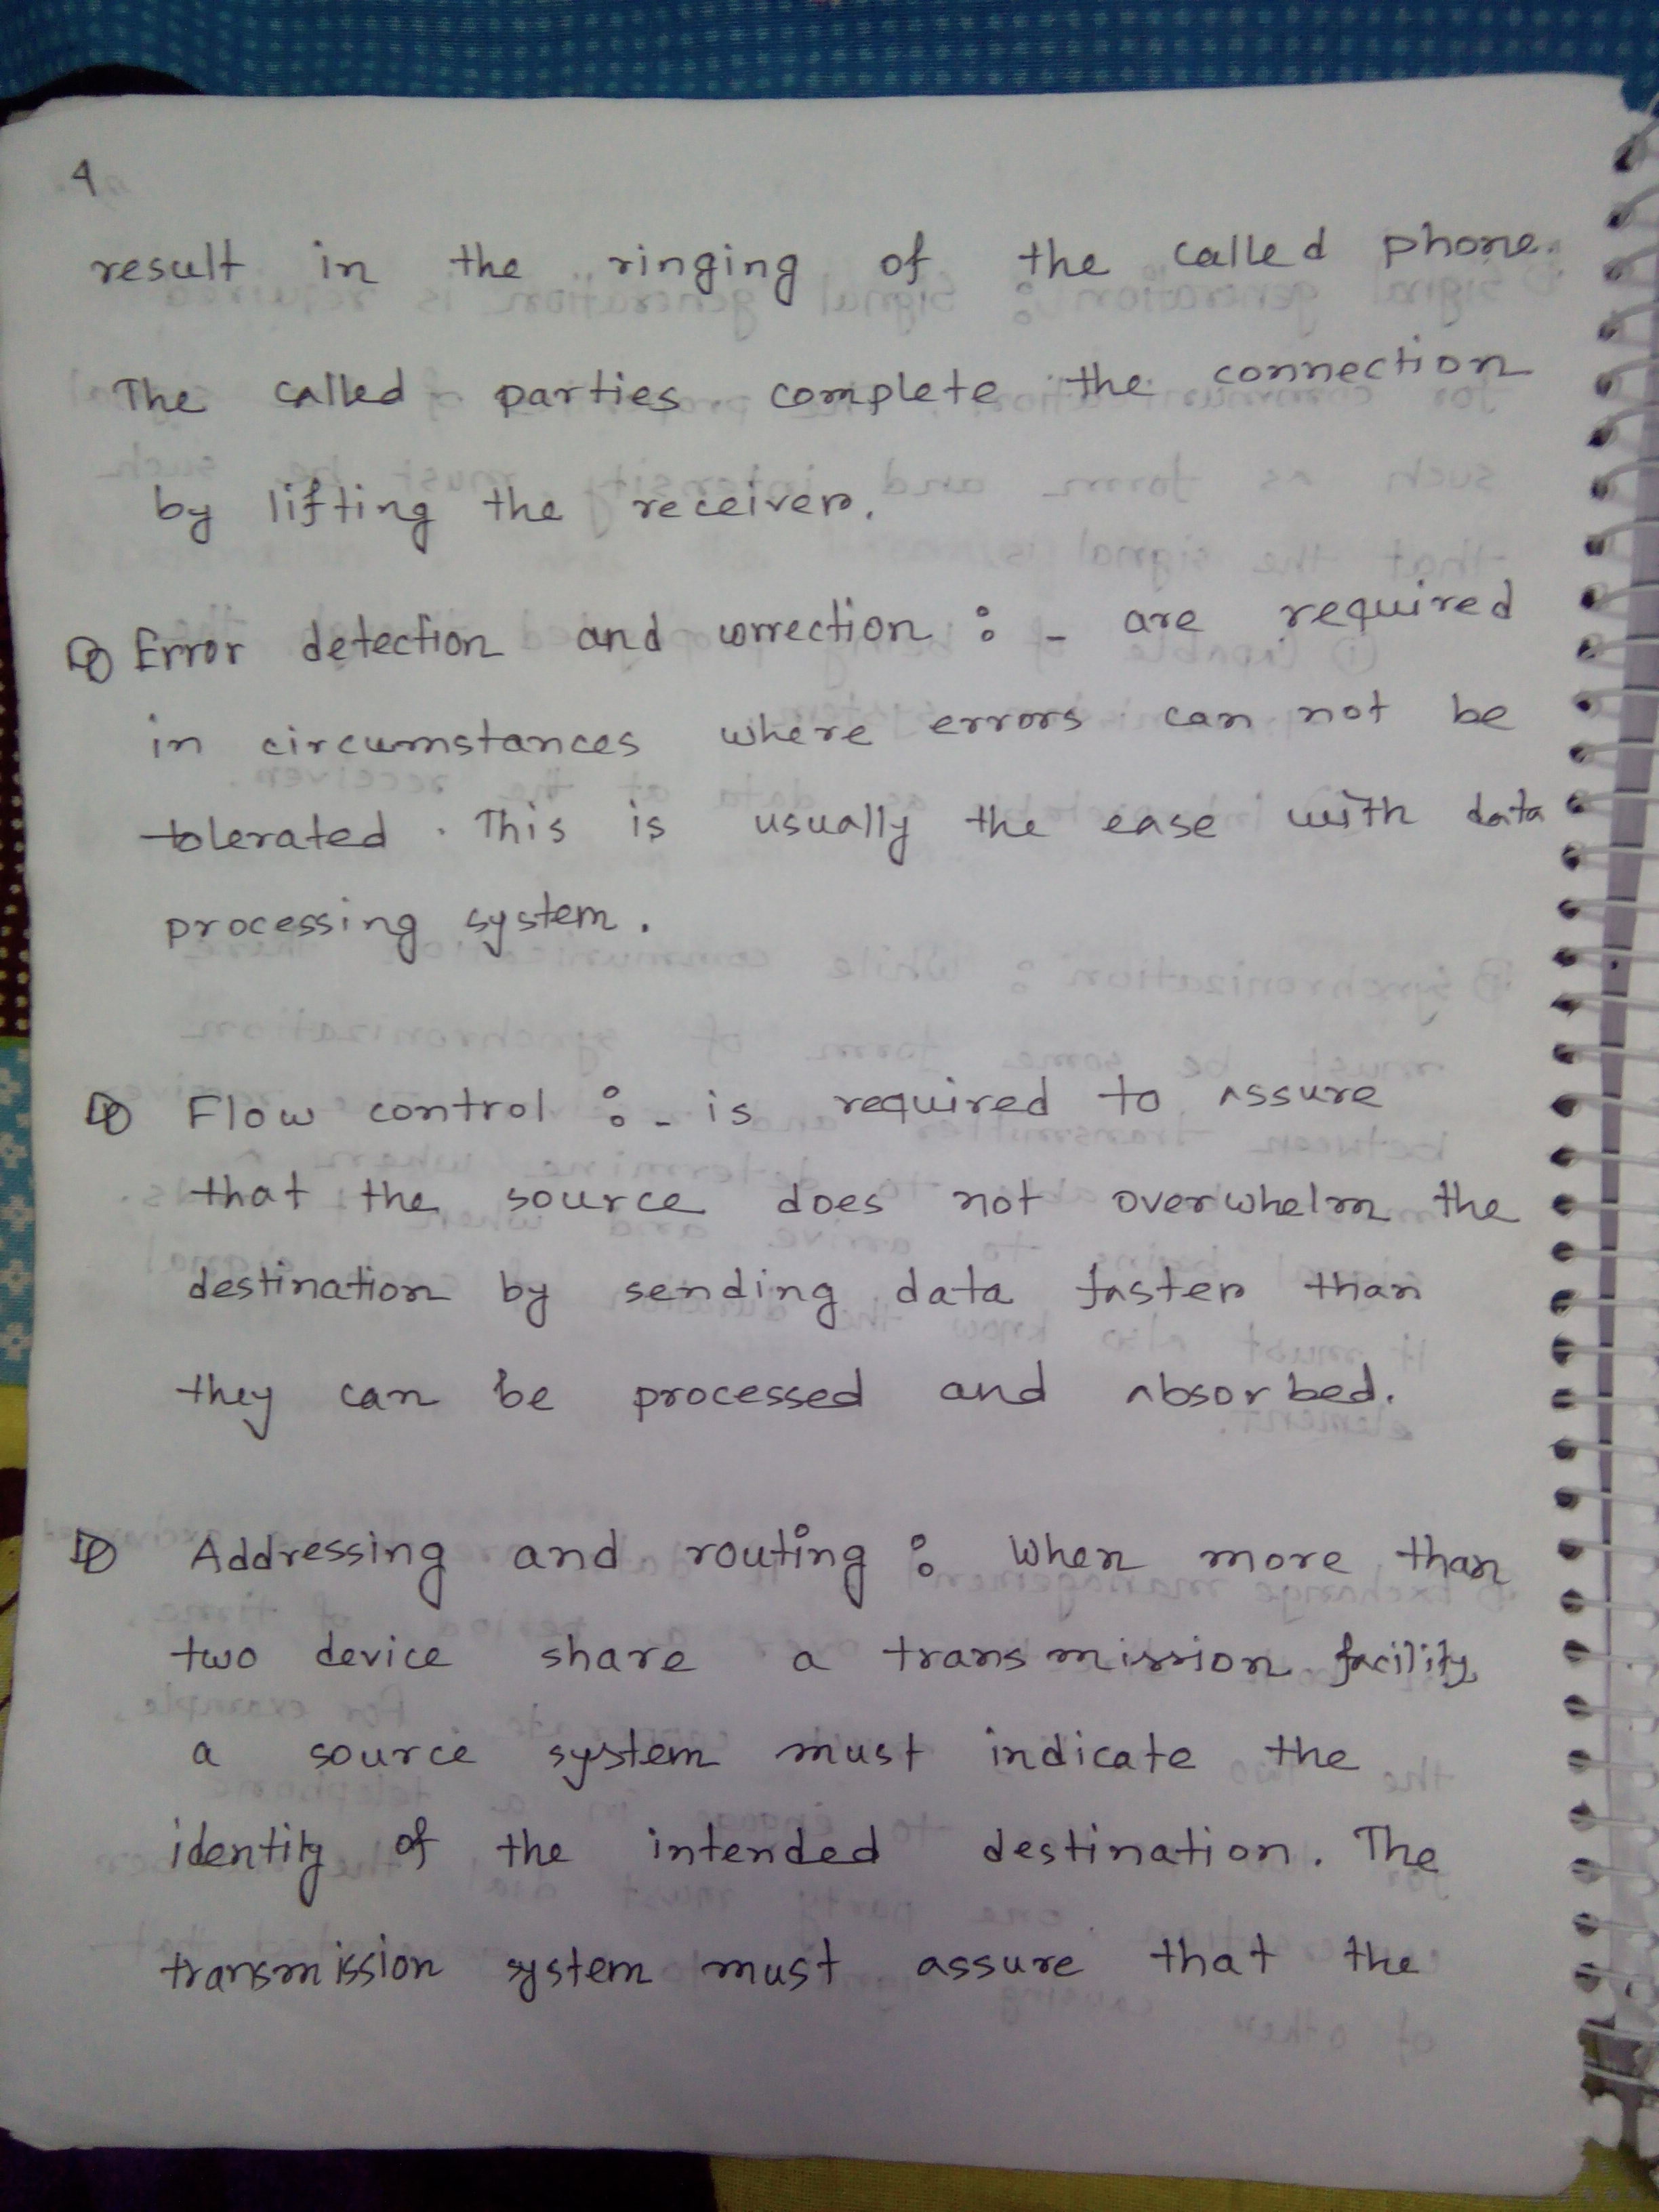 4
result in the ringing of the called phone.
The called parties complete the connection
by lifting the receiver.
Error detection and correction :- are required
in circumstances where errors can not be
tolerated. This is usually the case with data
processing system.
Flow control :- is required to assure
that the source does not overwhelm the
destination by sending data faster than
they can be processed and absorbed.
Addressing and routing : When more than
two device share a transmission facility
a source system must indicate the
identity of the intended destination. The
transmission system must assure that the